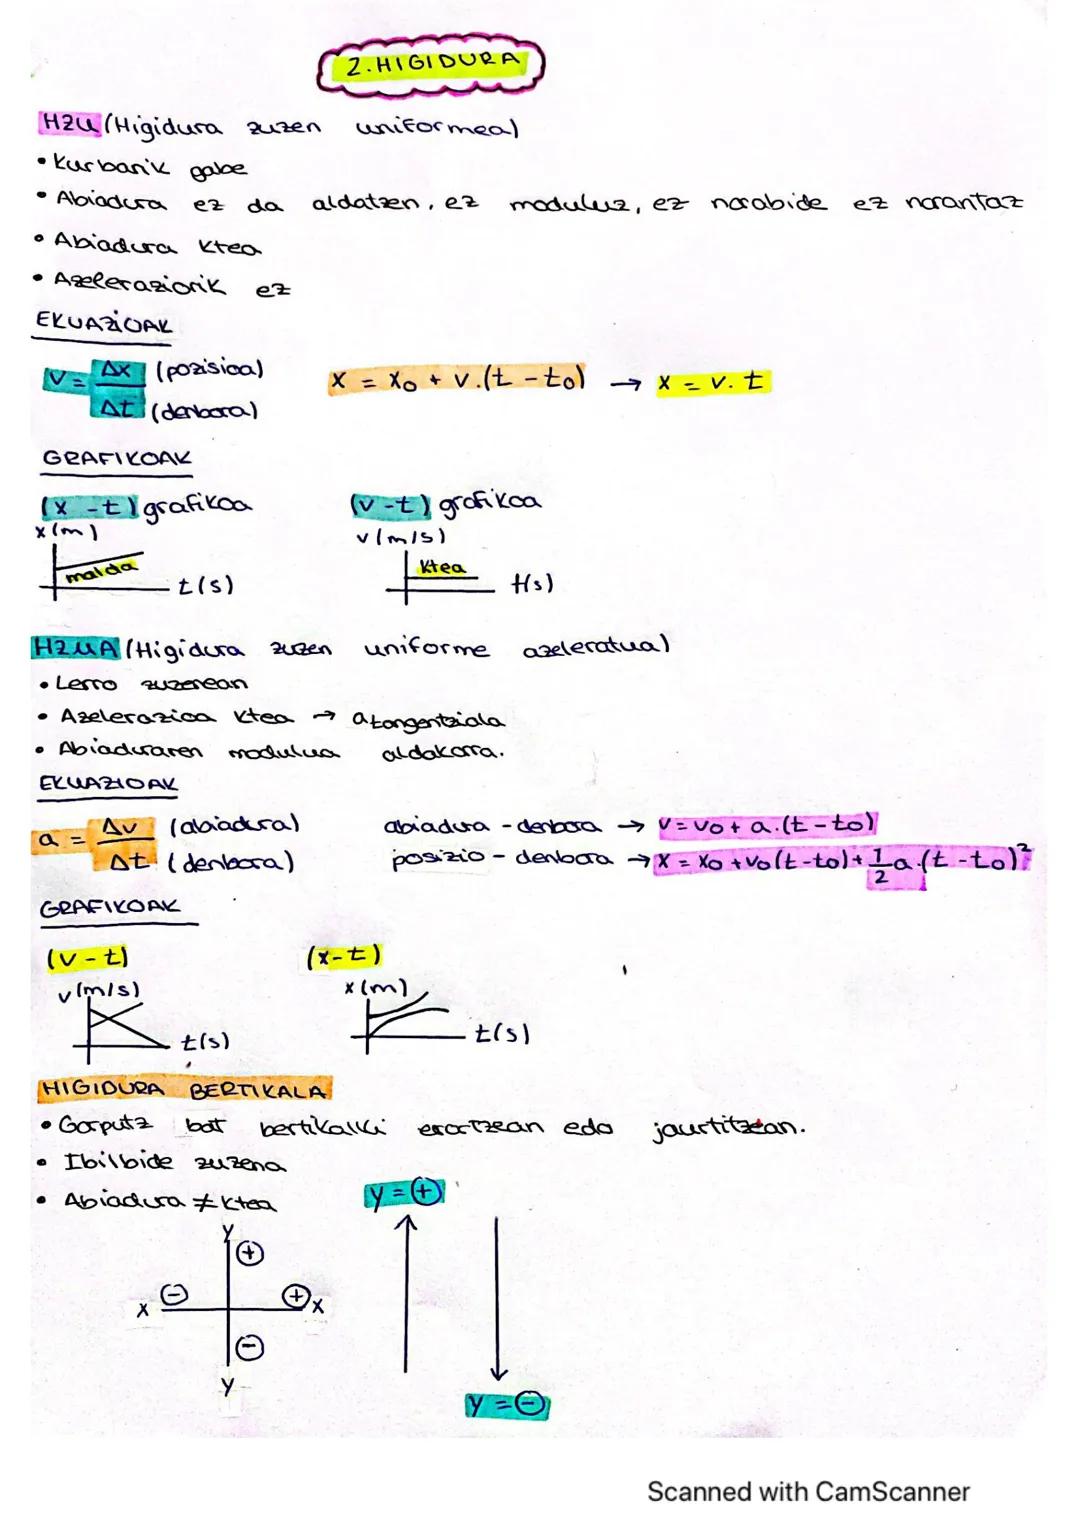 2. HIGIDURA
HZU (Higidura zuzen uniformea)
• Kurbarik gabe
• Abiadura ez da aldatzen, ez moduluz, ez norabide ez norantzaz
• Abiadura Ktea
• Azeleraziorik ez
EKUAZIOAK
V = Δx (pozisioa)
Δt (denbora)
x = x₀ + v.(t - t₀) → x = v. t
GRAFIKOAK
(x - t) grafikoa (v - t) grafikoa
x (m) v (m/s)
malda Ktea
t(s) t(s)
HZUA (Higidura zuzen uniforme azeleratua)
• Lerro zuzenean
• Azelerazioa Ktea → a tangentziala
• Abiaduraren modulua aldakorra.
EKUAZIOAK
a = Δv (abiadura)
Δt (denbora)
abiadura - denbora → v = v₀ + a.(t - t₀)
posizio - denbora → x = x₀ + v₀(t - t₀) + 1/2 a.(t - t₀)²
GRAFIKOAK
(v - t) (x - t)
v (m/s) x (m)
t(s) t(s)
HIGIDURA BERTIKALA
• Gorputz bat bertikalki erortzean edo jaurtitzean.
• Ibilbide zuzena
• Abiadura ≠ Ktea
y = +
y
+
x - + x
-
y
y = -
Scanned with CamScanner